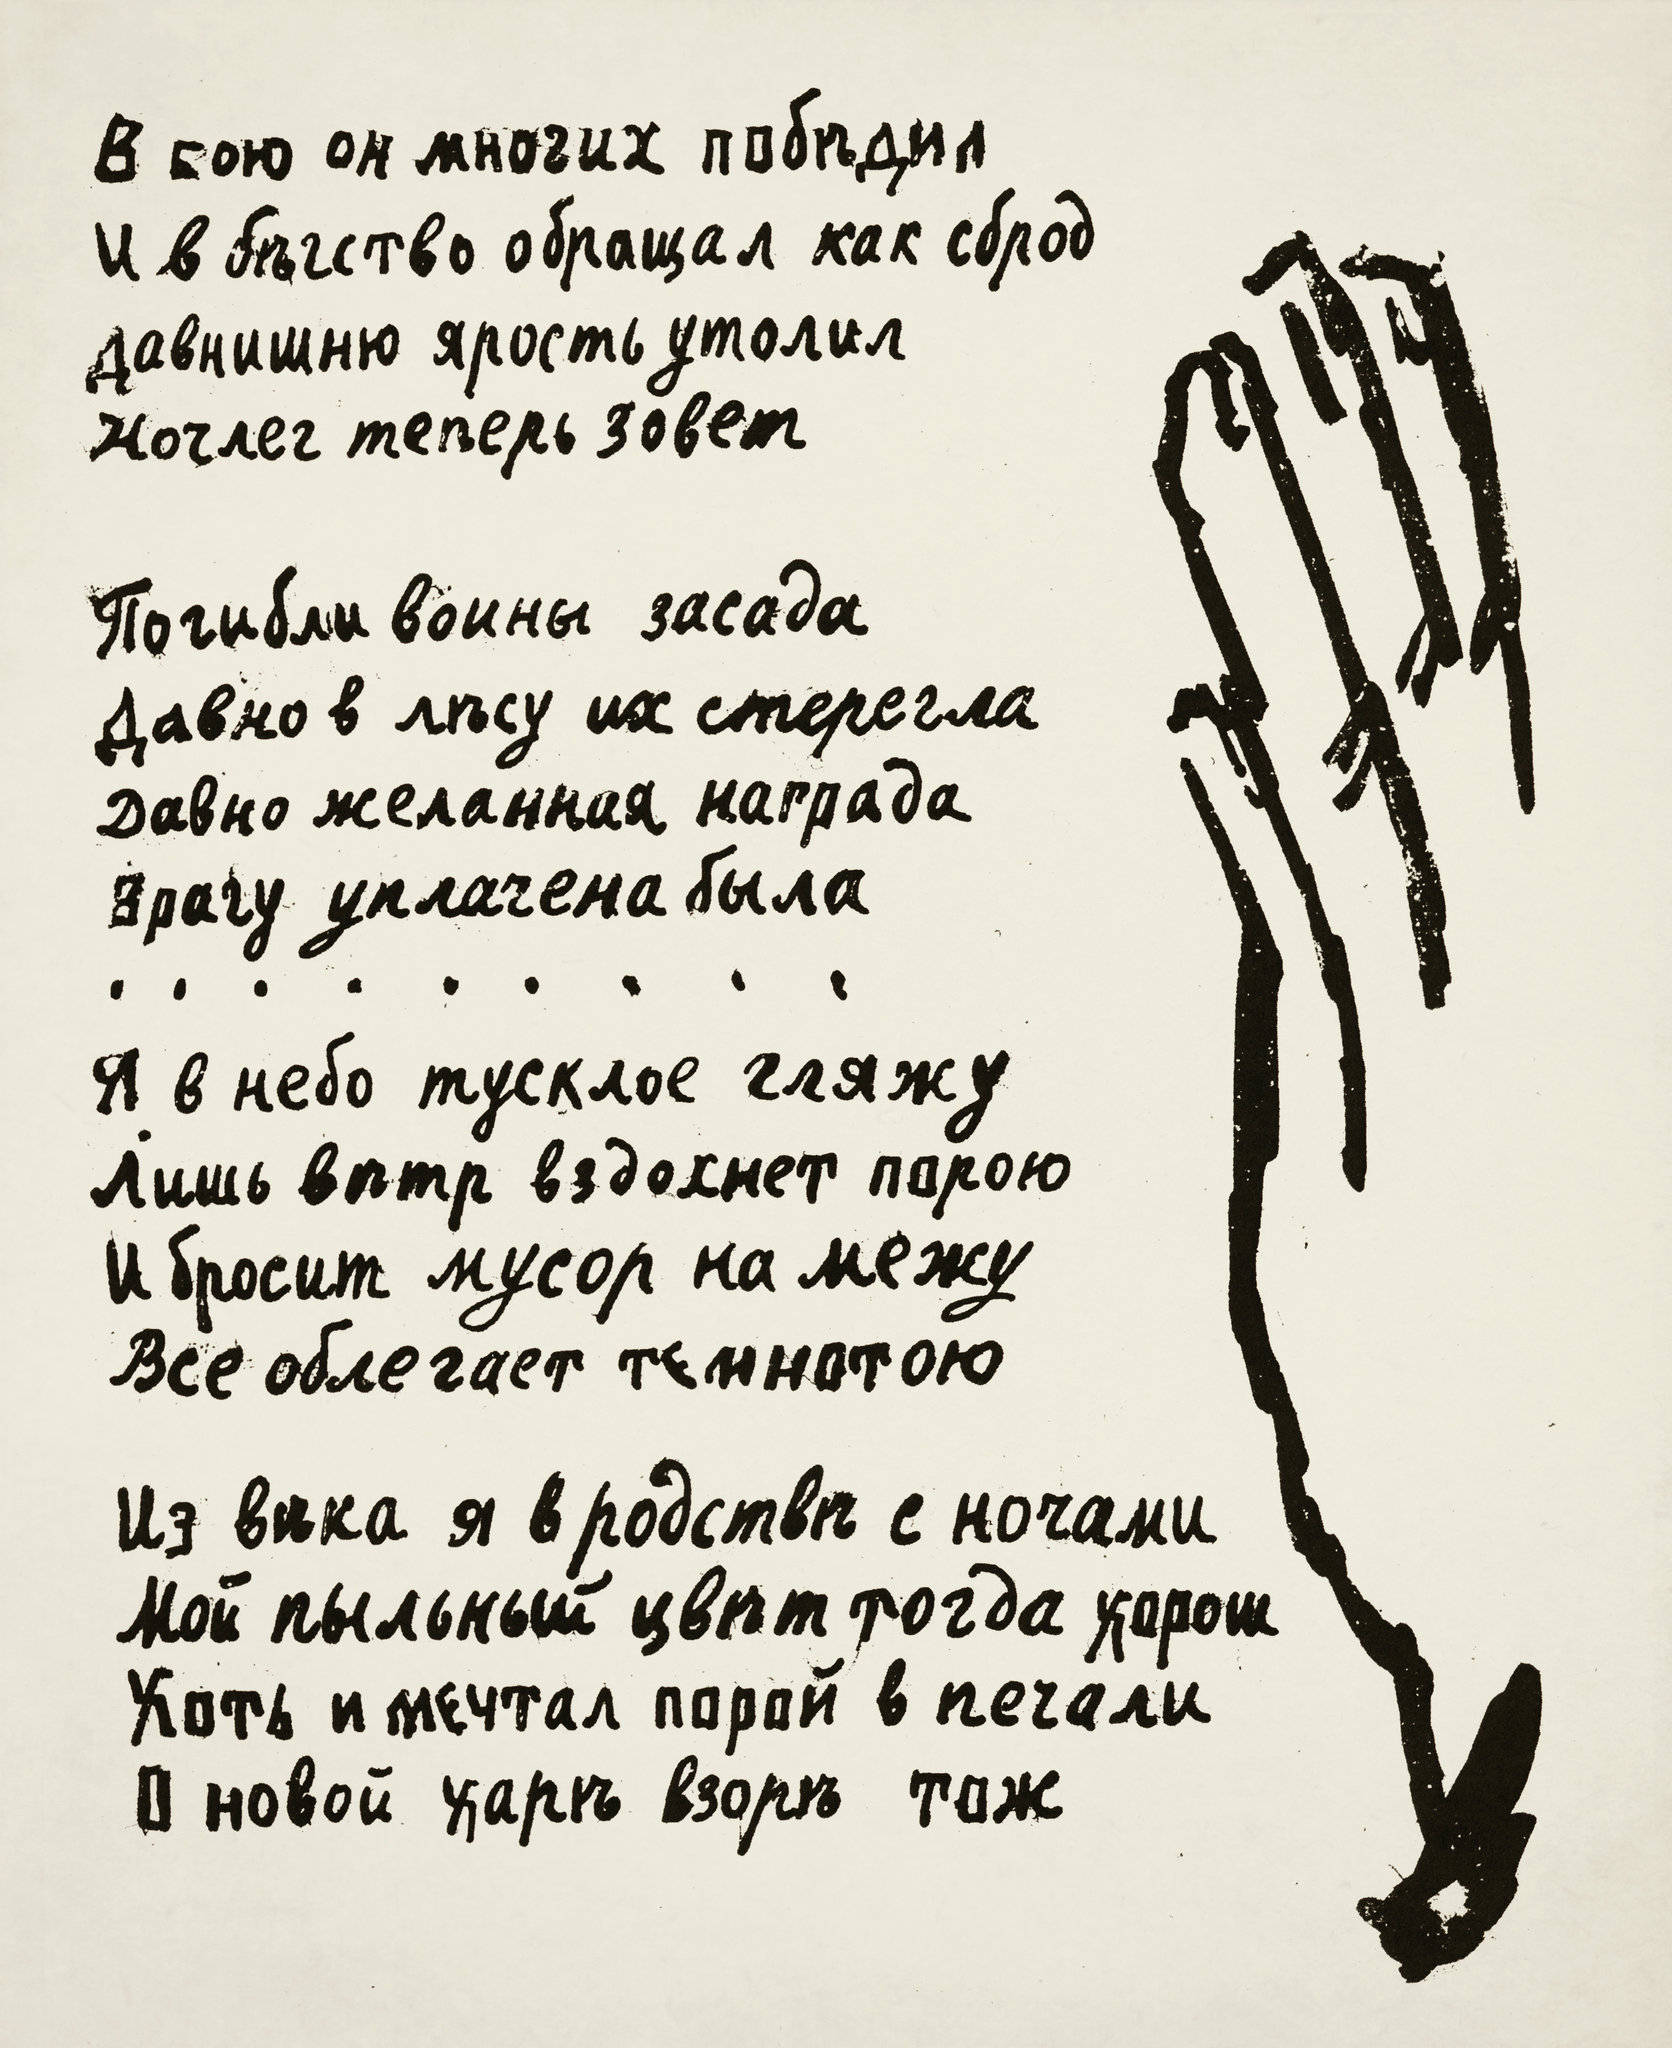 В бою он многих побѣдил
И в бѣгство обращал как сброд
Давнишню ярость утолил
Ночлег теперь зовет
Погибли воины засада
Давно в лѣсу их стерегла
Давно желанная награда
Врагу уплачена была
. . . . . . . . .
Я в небо тусклое гляжу
Лишь вѣтр вздохнет порою
И бросит мусор на межу
Все облегает темнотою
Из вѣка я в родствѣ с ночами
Мой пыльный цвѣт тогда хорош
Хоть и мечтал порой в печали
О новой харѣ взорѣ тож